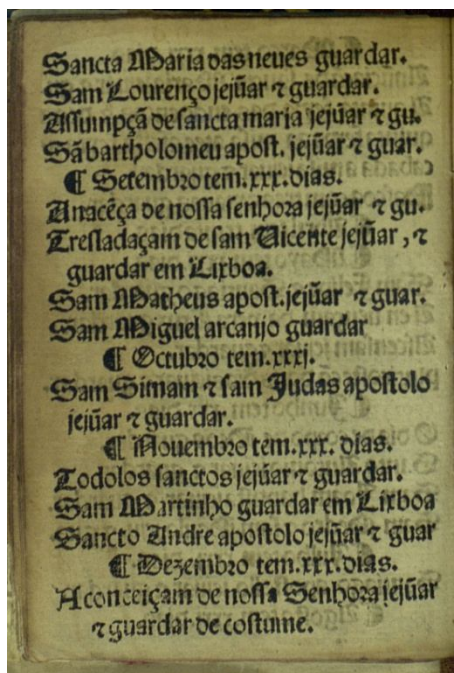 Sancta Maria das neues guardar.
Sam Lourenço jejũar ⁊ guardar.
Assumpçã de sancta maria jejũar ⁊ gu.
Sã bartholomeu apost. jejũar ⁊ guar.
¶ Setembro tem.xxx.dias.
Anacẽça de nossa senhora jejũar ⁊ gu.
Tresladaçam de sam Vicente jejũar, ⁊
guardar em Lixboa.
Sam Matheus apost.jejũar ⁊ guar.
Sam Miguel arcanjo guardar
¶ Octubro tem.xxxj.
Sam Simam ⁊ sam Judas apostolo
jejũar ⁊ guardar.
¶ Nouembro tem.xxx. dias.
Todolos sanctos jejũar ⁊ guardar.
Sam Martinho guardar em Lixboa
Sancto Andre apostolo jejũar ⁊ guar
¶ Dezembro tem.xxx.dias.
A conceiçam de nossa Senhora jejũar
⁊ guardar de costume.